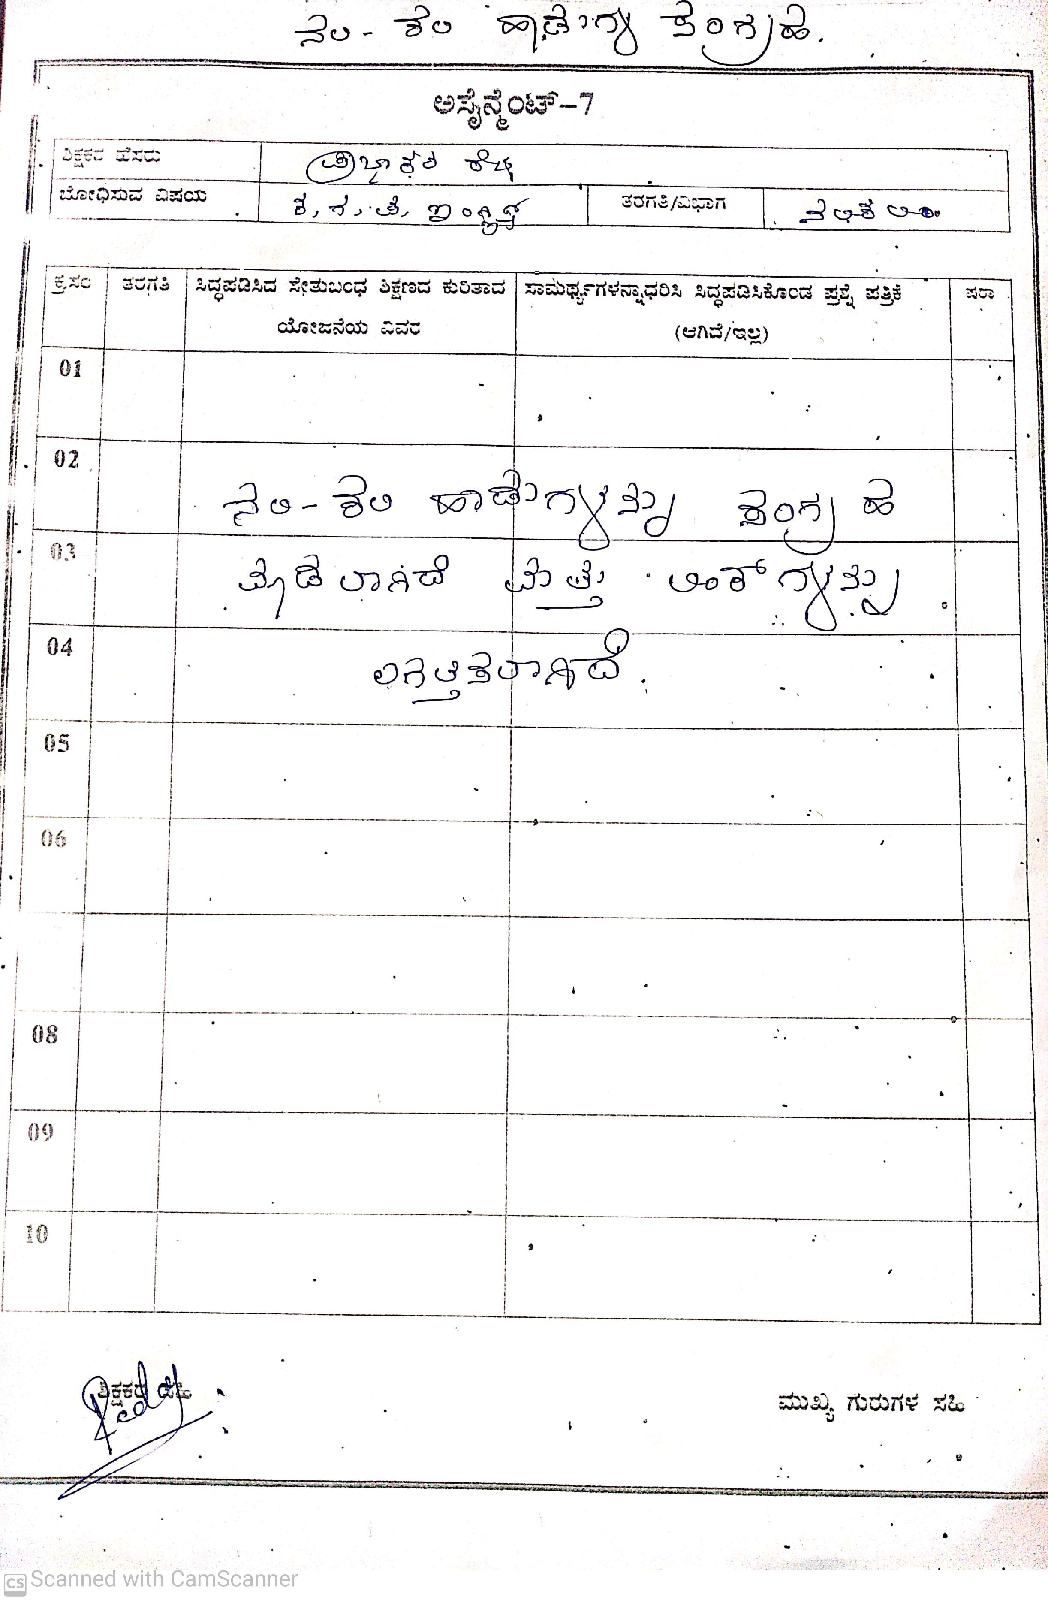 ನಲಿ - ಕಲಿ ಹಾಡುಗಳ ಸಂಗ್ರಹ.
ಅಸೈನ್ಮೆಂಟ್-7
ಶಿಕ್ಷಕರ ಹೆಸರು
ಬೋಧಿಸುವ ವಿಷಯ ಕ, ಗ, ಪ, ಇಂಗ್ಲೀಷ ತರಗತಿ/ವಿಭಾಗ ನಲಿಕಲಿ
ಕ್ರ.ಸಂ ತರಗತಿ ಸಿದ್ಧಪಡಿಸಿದ ಸೇತುಬಂಧ ಶಿಕ್ಷಣದ ಕುರಿತಾದ ಸಾಮರ್ಥ್ಯಗಳನ್ನಾಧರಿಸಿ ಸಿದ್ಧಪಡಿಸಿಕೊಂಡ ಪ್ರಶ್ನೆ ಪತ್ರಿಕೆ ಷರಾ
ಯೋಜನೆಯ ವಿವರ (ಆಗಿದೆ/ಇಲ್ಲ)
01
02
ನಲಿ - ಕಲಿ ಹಾಡುಗಳನ್ನು ಸಂಗ್ರಹ
03
ಮಾಡಲಾಗಿದೆ ಮತ್ತು ಲಿಂಕ್ ಗಳನ್ನು
04
ಲಗತ್ತಿಸಲಾಗಿದೆ.
05
06
08
09
10
ಶಿಕ್ಷಕರ ಸಹಿ ಮುಖ್ಯ ಗುರುಗಳ ಸಹಿ
CS Scanned with CamScanner